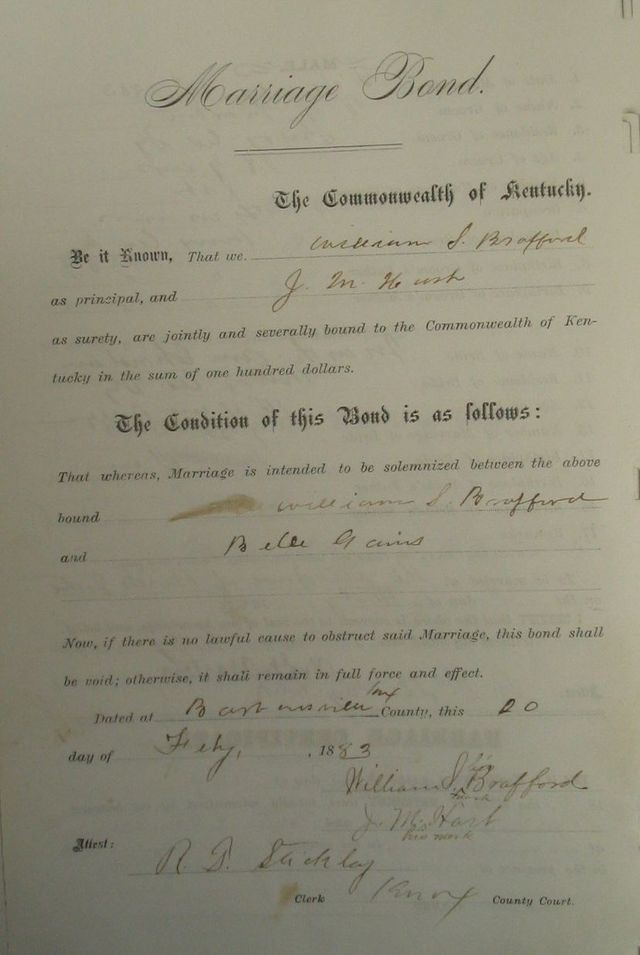 Marriage Bond.
The Commonwealth of Kentucky.
Be it Known, That we William S. Brafford
as principal, and J. M. Hart
as surety, are jointly and severally bound to the Commonwealth of Ken-
tucky in the sum of one hundred dollars.
The Condition of this Bond is as follows:
That whereas, Marriage is intended to be solemnized between the above
bound William S. Brafford
and Belle Gains
Now, if there is no lawful cause to obstruct said Marriage, this bond shall
be void; otherwise, it shall remain in full force and effect.
Dated at County, this 20
day of Feby, 1883
William S. Brafford
J. M. Hart
his mark
Attest:
Stickley
Clerk Knox County Court.